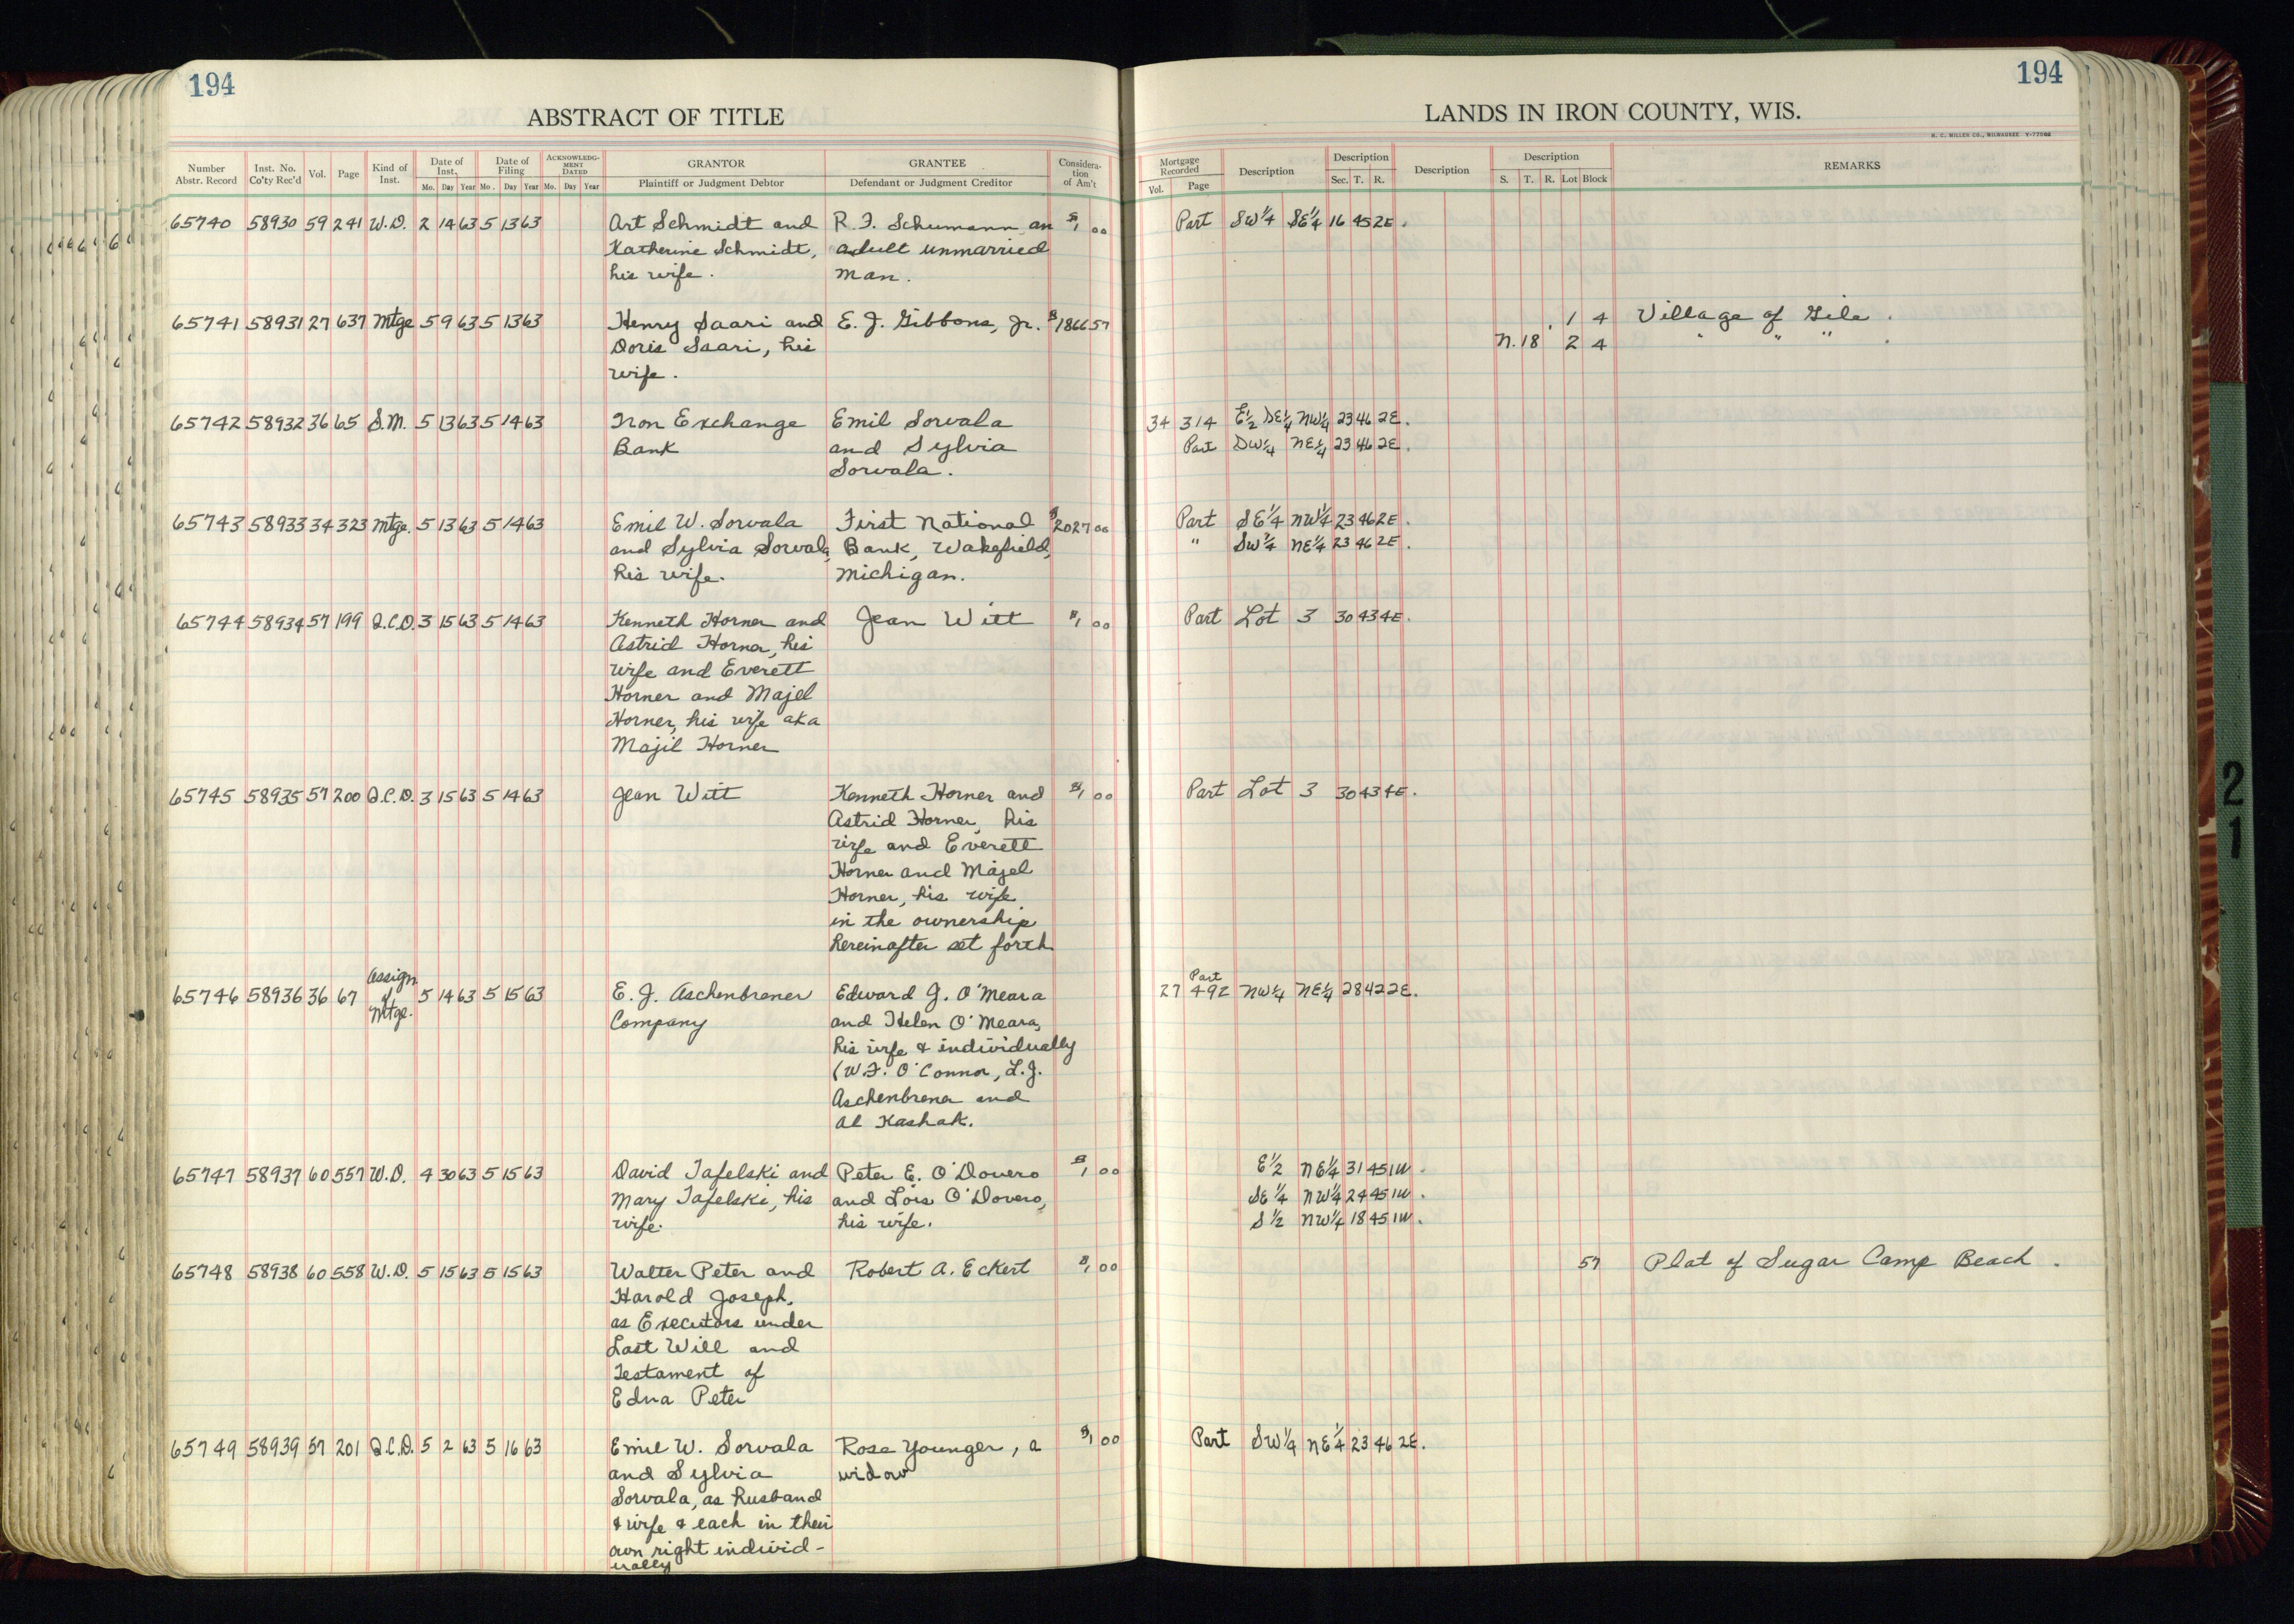 194
194
ABSTRACT OF TITLE
LANDS IN IRON COUNTY, WIS.
H. C. MILLER CO., MILWAUKEE
Number Abstr. Record Inst. No. Co'ty Rec'd Vol. Page Kind of Inst. Date of Inst. Mo. Day Year Date of Filing Mo. Day Year ACKNOWLEDGMENT DATED Mo. Day Year GRANTOR Plaintiff or Judgment Debtor GRANTEE Defendant or Judgment Creditor Consideration of Am't
Mortgage Recorded Vol. Page Description Description Sec. T. R. Description Description S. T. R. Lot Block REMARKS
65740 58930 59 241 W.D. 2 14 63 5 13 63 Art Schmidt and R. F. Schumann, an $1 00 Part SW1/4 SE1/4 16 45 2E.
Katherine Schmidt, adult unmarried
his wife. man.
65741 58931 27 637 Mtge 5 9 63 5 13 63 Henry Saari and E. J. Gibbons, Jr. $1866 57 1 4 Village of Gile.
Doris Saari, his N. 18 2 4 " " "
wife.
65742 58932 36 65 S.M. 5 13 63 5 14 63 Iron Exchange Emil Sorvala 34 314 E1/2 SE1/4 NW1/4 23 46 2E.
Bank and Sylvia Part SW1/4 NE1/4 23 46 2E.
Sorvala.
65743 58933 34 323 Mtge. 5 13 63 5 14 63 Emil W. Sorvala First National $2027 00 Part SE1/4 NW1/4 23 46 2E.
and Sylvia Sorvala, Bank, Wakefield, " SW1/4 NE1/4 23 46 2E.
his wife. Michigan.
65744 58934 57 199 Q.C.D. 3 15 63 5 14 63 Kenneth Horner and Jean Witt $1 00 Part Lot 3 30 43 4E.
Astrid Horner, his
wife and Everett
Horner and Majel
Horner, his wife aka
Majil Horner
65745 58935 57 200 Q.C.D. 3 15 63 5 14 63 Jean Witt Kenneth Horner and $1 00 Part Lot 3 30 43 4E.
Astrid Horner, his
wife and Everett
Horner and Majel
Horner, his wife
in the ownership
hereinafter set forth
65746 58936 36 67 Assign of Mtge. 5 14 63 5 15 63 E. J. Aschenbrener Edward J. O'Meara 27 492 Part NW1/4 NE1/4 28 42 2E.
Company and Helen O'Meara,
his wife & individually
(W.F. O'Connor, L.J.
Aschenbrener and
Al Kashak.
65747 58937 60 557 W.D. 4 30 63 5 15 63 David Tafelski and Peter E. O'Dovero $1 00 E1/2 NE1/4 31 45 1W.
Mary Tafelski, his and Lois O'Dovero, SE1/4 NW1/4 24 45 1W.
wife. his wife. S1/2 NW1/4 18 45 1W.
65748 58938 60 558 W.D. 5 15 63 5 15 63 Walter Peter and Robert A. Eckert $1 00 57 Plat of Sugar Camp Beach.
Harold Joseph,
as Executors under
Last Will and
Testament of
Edna Peter
65749 58939 57 201 Q.C.D. 5 2 63 5 16 63 Emil W. Sorvala Rose Younger, a $1 00 Part SW1/4 NE1/4 23 46 2E.
and Sylvia widow
Sorvala, as husband
& wife & each in their
own right individ-
ually
21